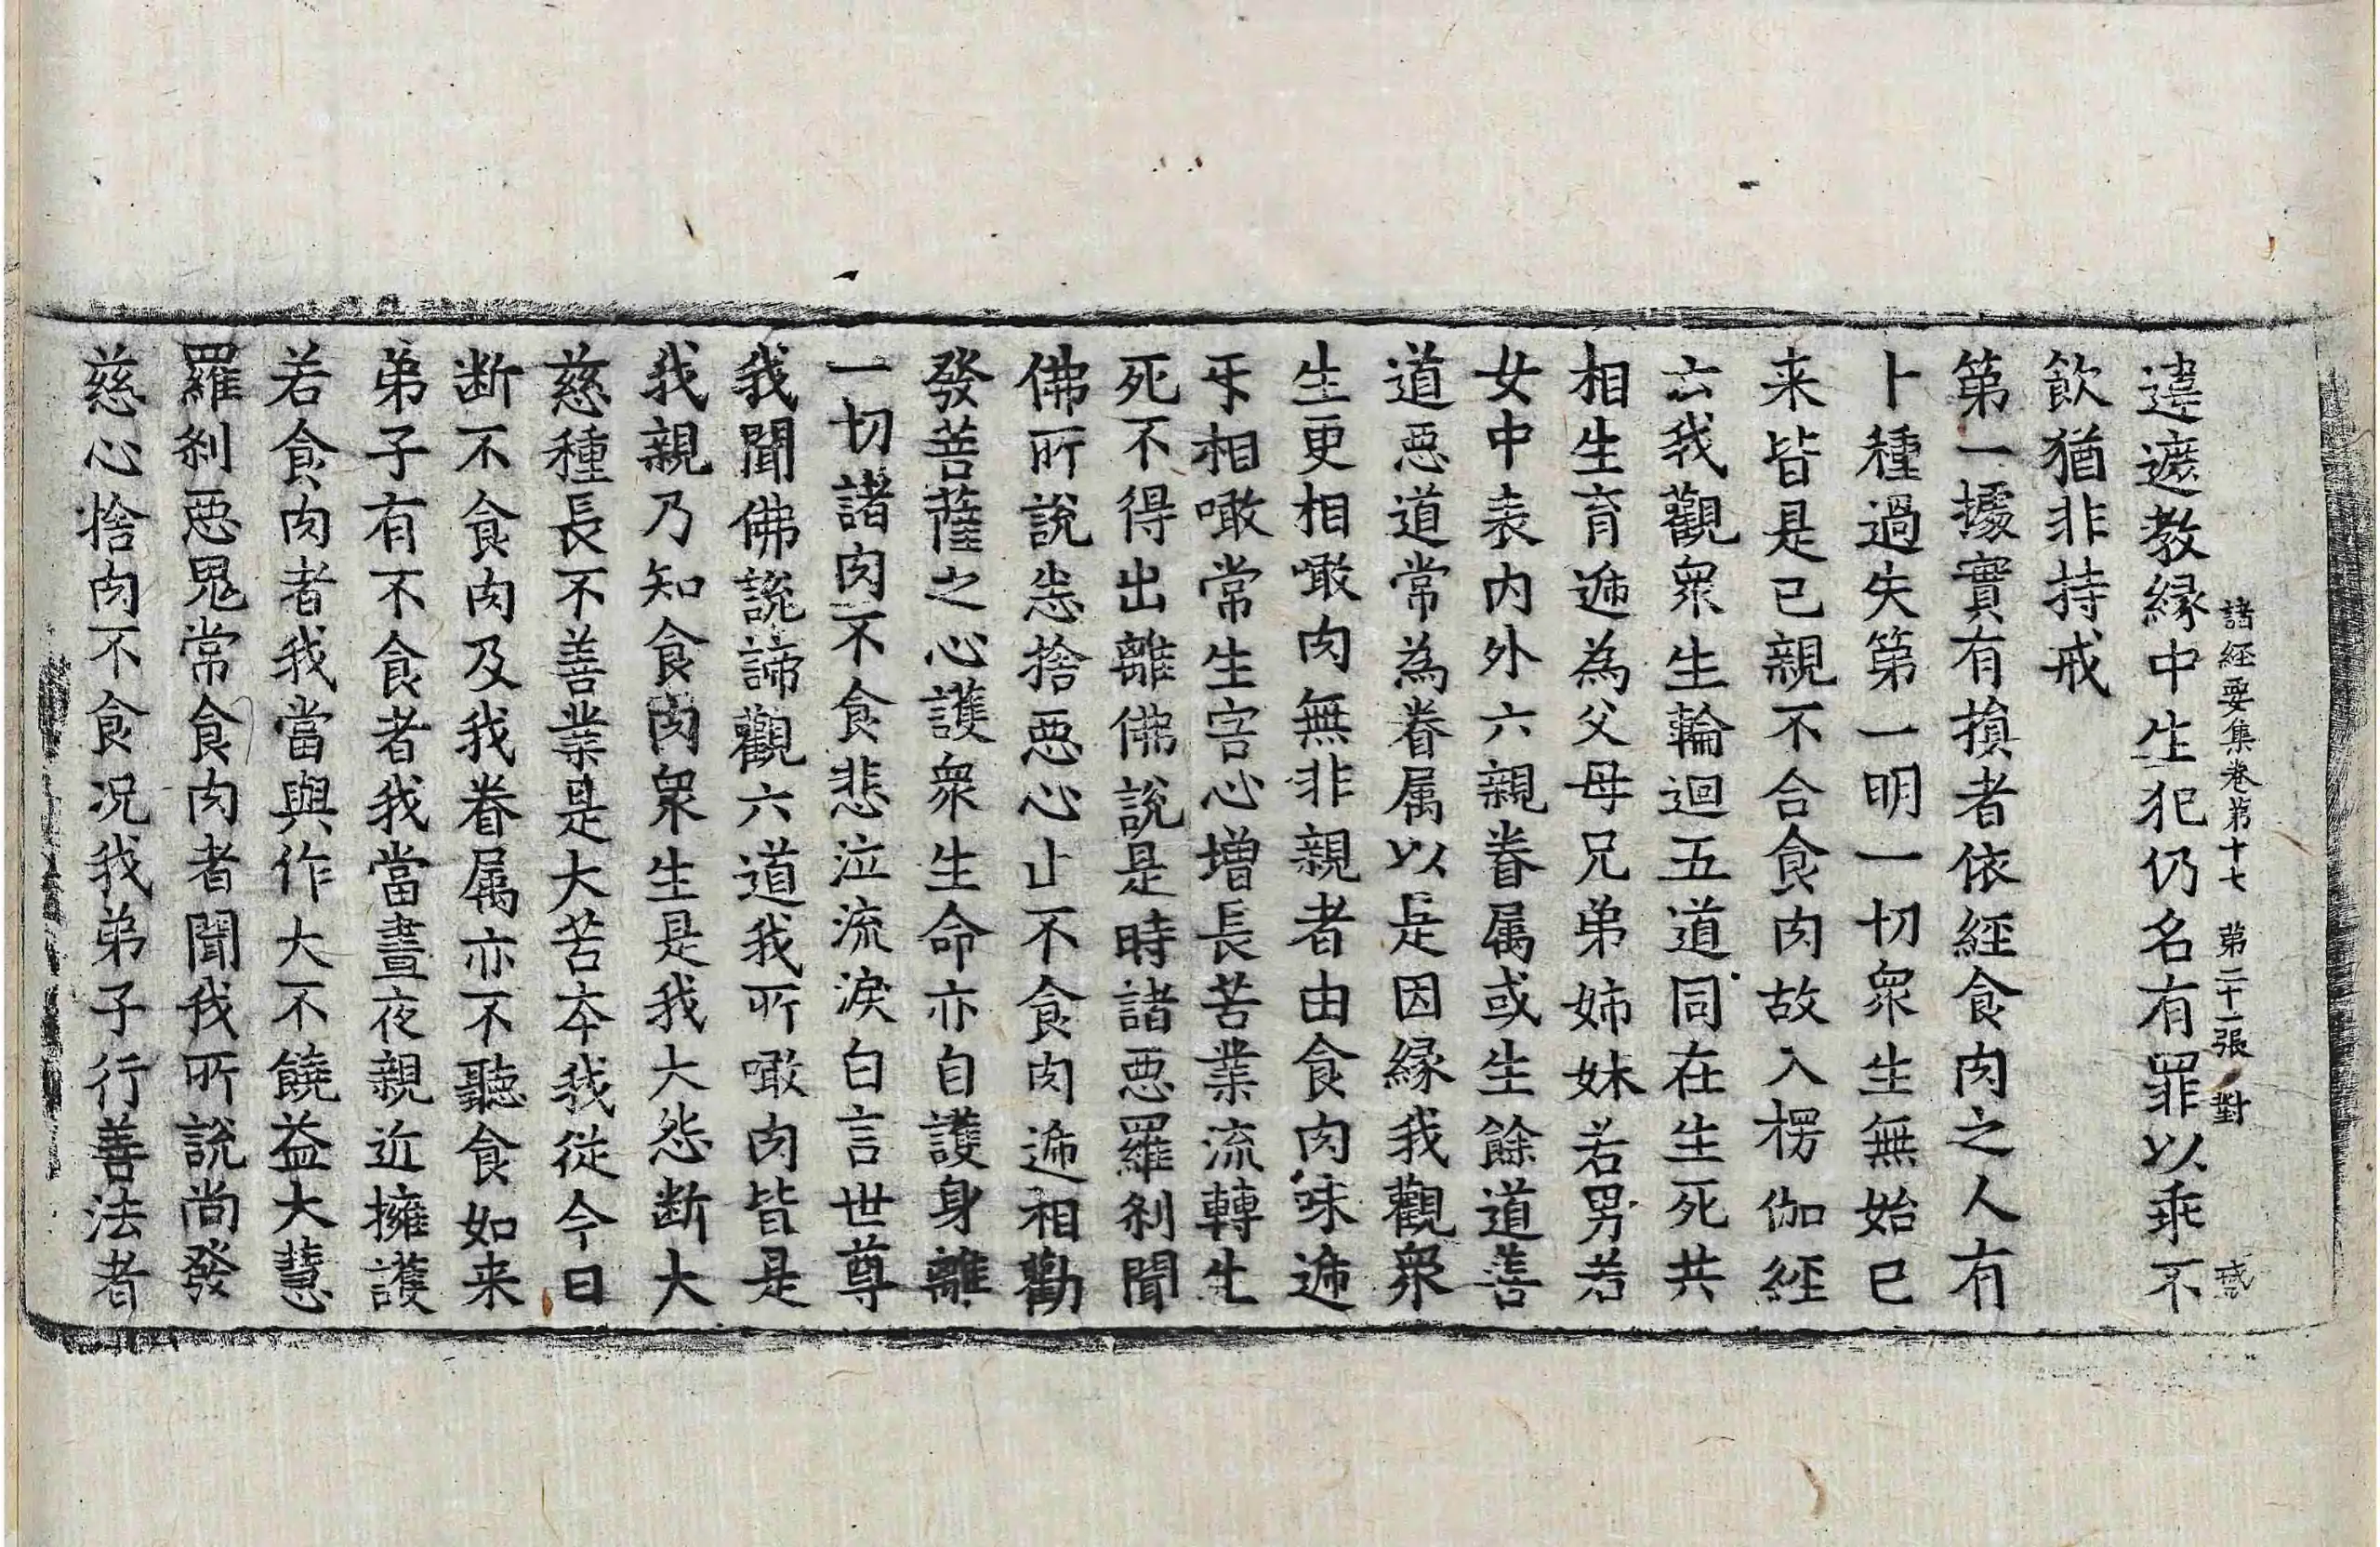 諸經要集卷第十七 苐二十一張 對
違遮教縁中生犯仍名有罪以乖不
飲猶非持戒
第一據實有損者依經食肉之人有
卜種過失第一明一切衆生無始已
来皆是已親不合食肉故入楞伽經
云我觀衆生輪迴五道同在生死共
相生育遞為父母兄弟姉妹若男若
女中表内外六親眷属或生餘道善
道惡道常為眷属以是因縁我觀衆
生更相噉肉無非親者由食肉味遞
㸦相噉常生害心增長苦業流轉生
死不得出離佛說是時諸惡羅刹聞
佛所說悉捨惡心止不食肉遞相勸
發菩薩之心護衆生命亦自護身離
一切諸肉不食悲泣流淚白言世尊
我聞佛說諦觀六道我所噉肉皆是
我親乃知食肉衆生是我大怨断大
慈種長不善業是大苦夲我從今日
断不食肉及我眷属亦不聽食如来
弟子有不食者我當晝夜親近擁護
若食肉者我當與作大不饒益大慧
羅刹惡鬼常食肉者聞我所說尚發
慈心捨肉不食况我弟子行善法者